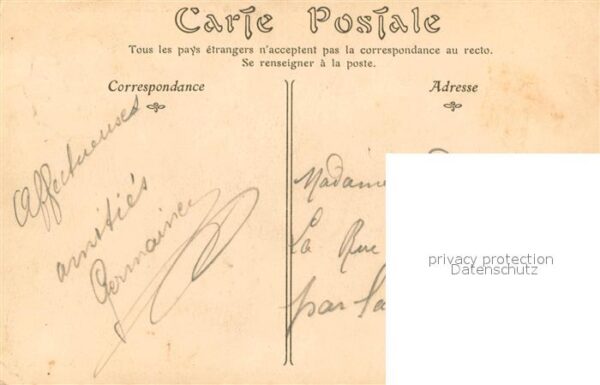 Carte Postale
Tous les pays étrangers n'acceptent pas la correspondance au recto.
Se renseigner à la poste.
Correspondance
Adresse
Affectueuses
amitiés
Germaine
Madame
La Rue
par la
privacy protection
Datenschutz